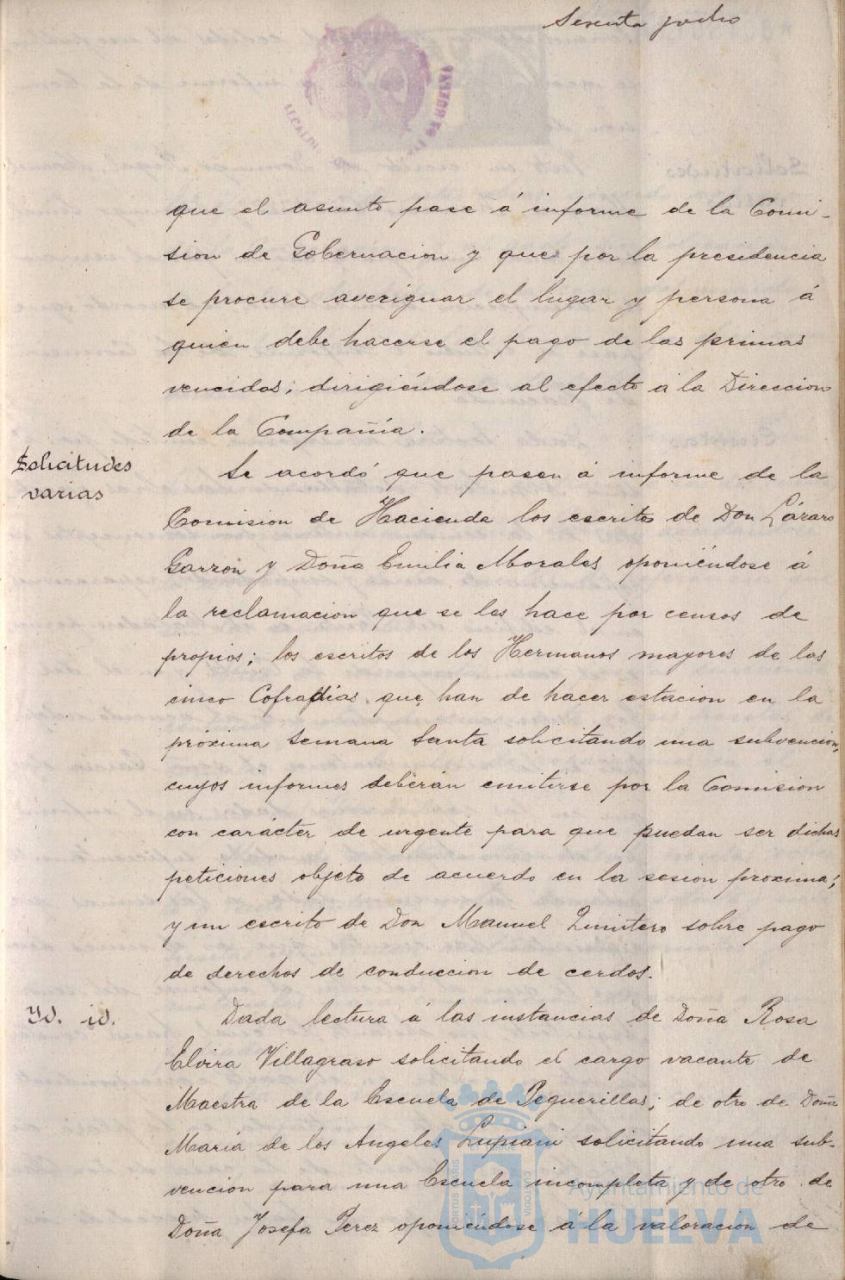 Sesenta y ocho
que el asunto pase á informe de la Comi-
sion de Gobernacion y que por la presidencia
se procure averiguar el lugar y persona á
quien debe hacerse el pago de las primas
vencidas; dirigiéndose al efecto á la Direccion
de la Compañía.
Solicitudes
varias
Se acordó que pasen á informe de la
Comision de Hacienda los escritos de Don Lázaro
Garzón y Doña Emilia Morales oponiéndose á
la reclamacion que se les hace por censos de
propios; los escritos de los Hermanos mayores de las
cinco Cofradías que han de hacer estacion en la
próxima Semana Santa solicitando una subvencion,
cuyos informes deberán emitirse por la Comision
con carácter de urgente para que puedan ser dichas
peticiones objeto de acuerdo en la sesion proxima;
y un escrito de Don Manuel Quintero sobre pago
de derechos de conduccion de cerdos.
Id. id.
Dada lectura á las instancias de Doña Rosa
Elvira Villagraso solicitando el cargo vacante de
Maestra de la Escuela de Peguerillas; de otro de Doña
María de los Angeles Lupiani solicitando una sub-
vencion para una Escuela incompleta y de otro de
Doña Josefa Perez oponiéndose á la valoracion de
Ayuntamiento de
HUELVA